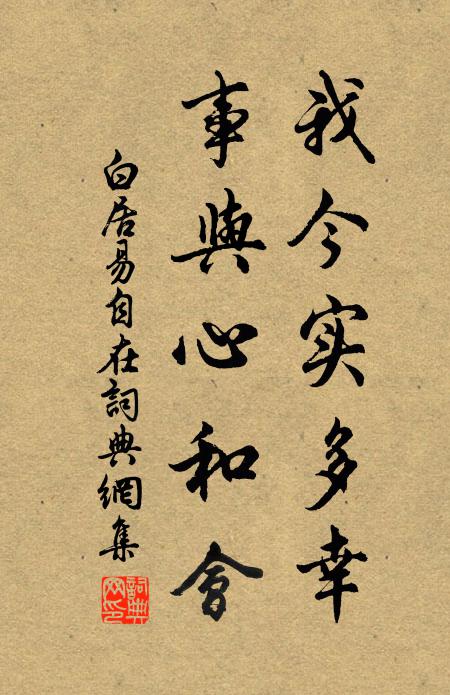 我今实多幸
事與心和會
白居易自在詞典網集
詞典网印